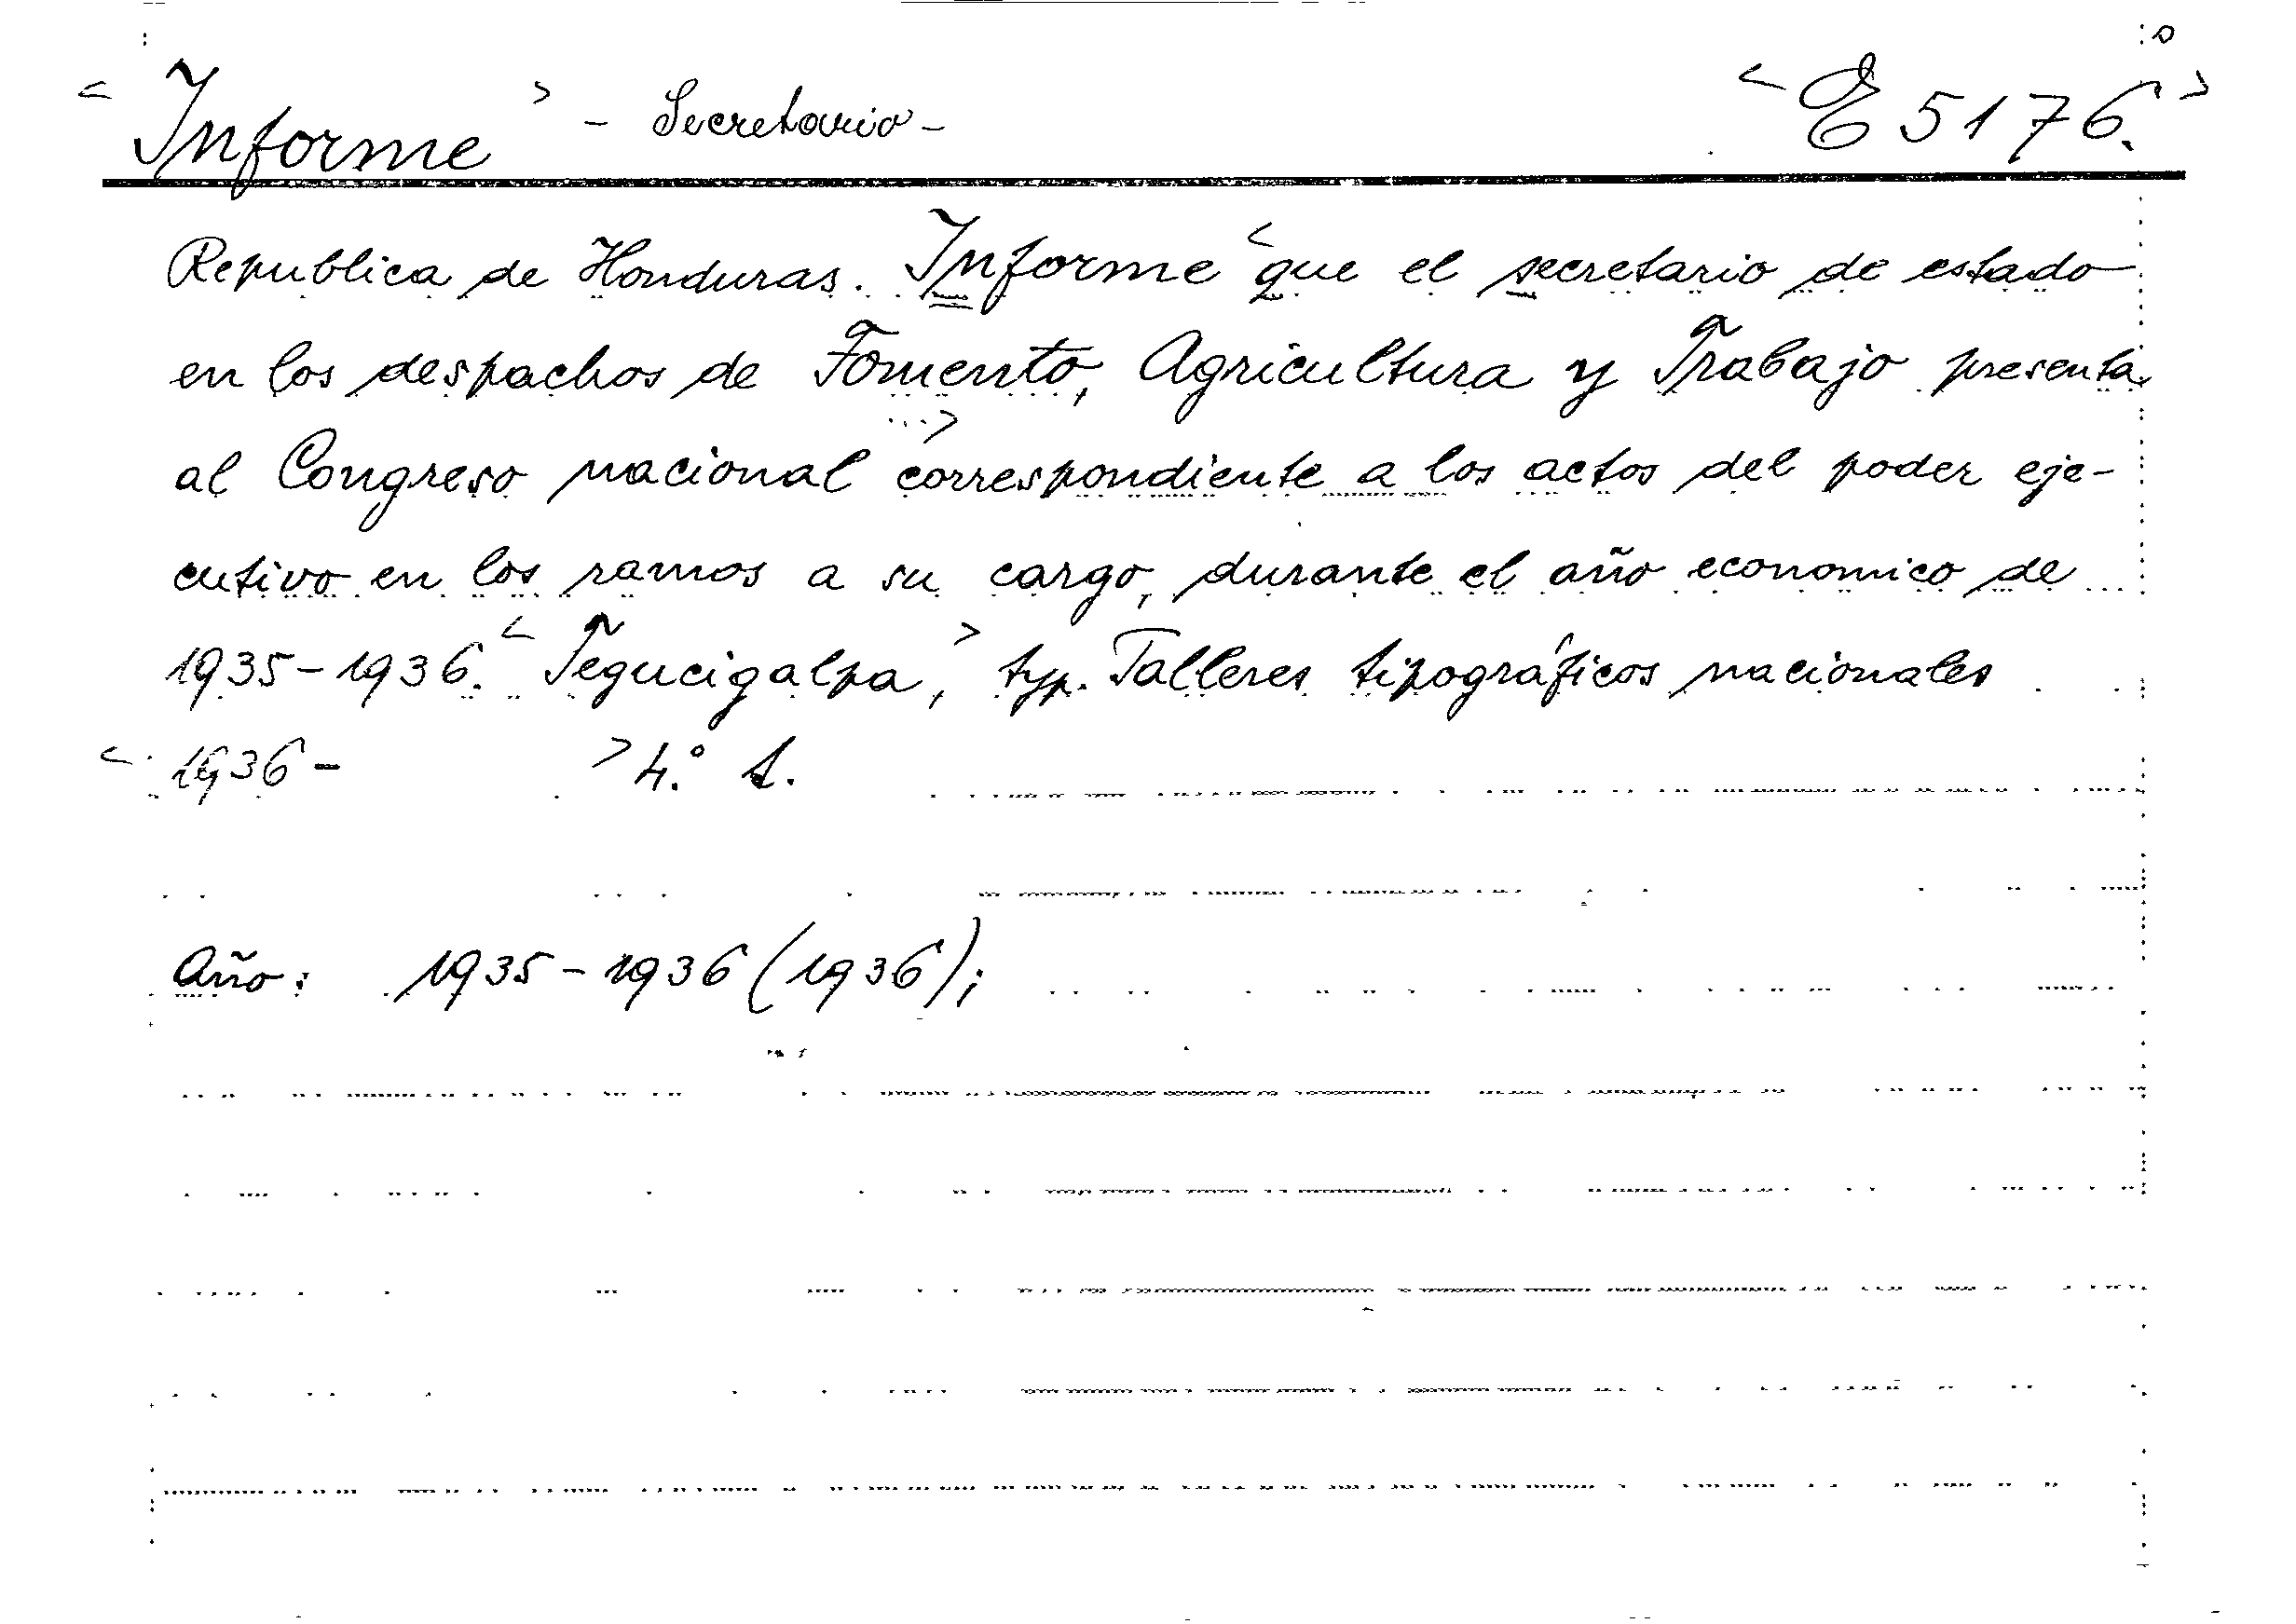 < Informe > - Secretario - < E 5176. >
Republica de Honduras. Informe < que el secretario de estado
en los despachos de Fomento, Agricultura y Trabajo presenta
al Congreso nacional > correspondiente a los actos del poder eje-
cutivo en los ramos a su cargo, durante el año economico de
1935-1936. < Tegucigalpa, > typ. Talleres tipográficos nacionales
< 1936 - > 4.°
Año: 1935-1936 (1936);